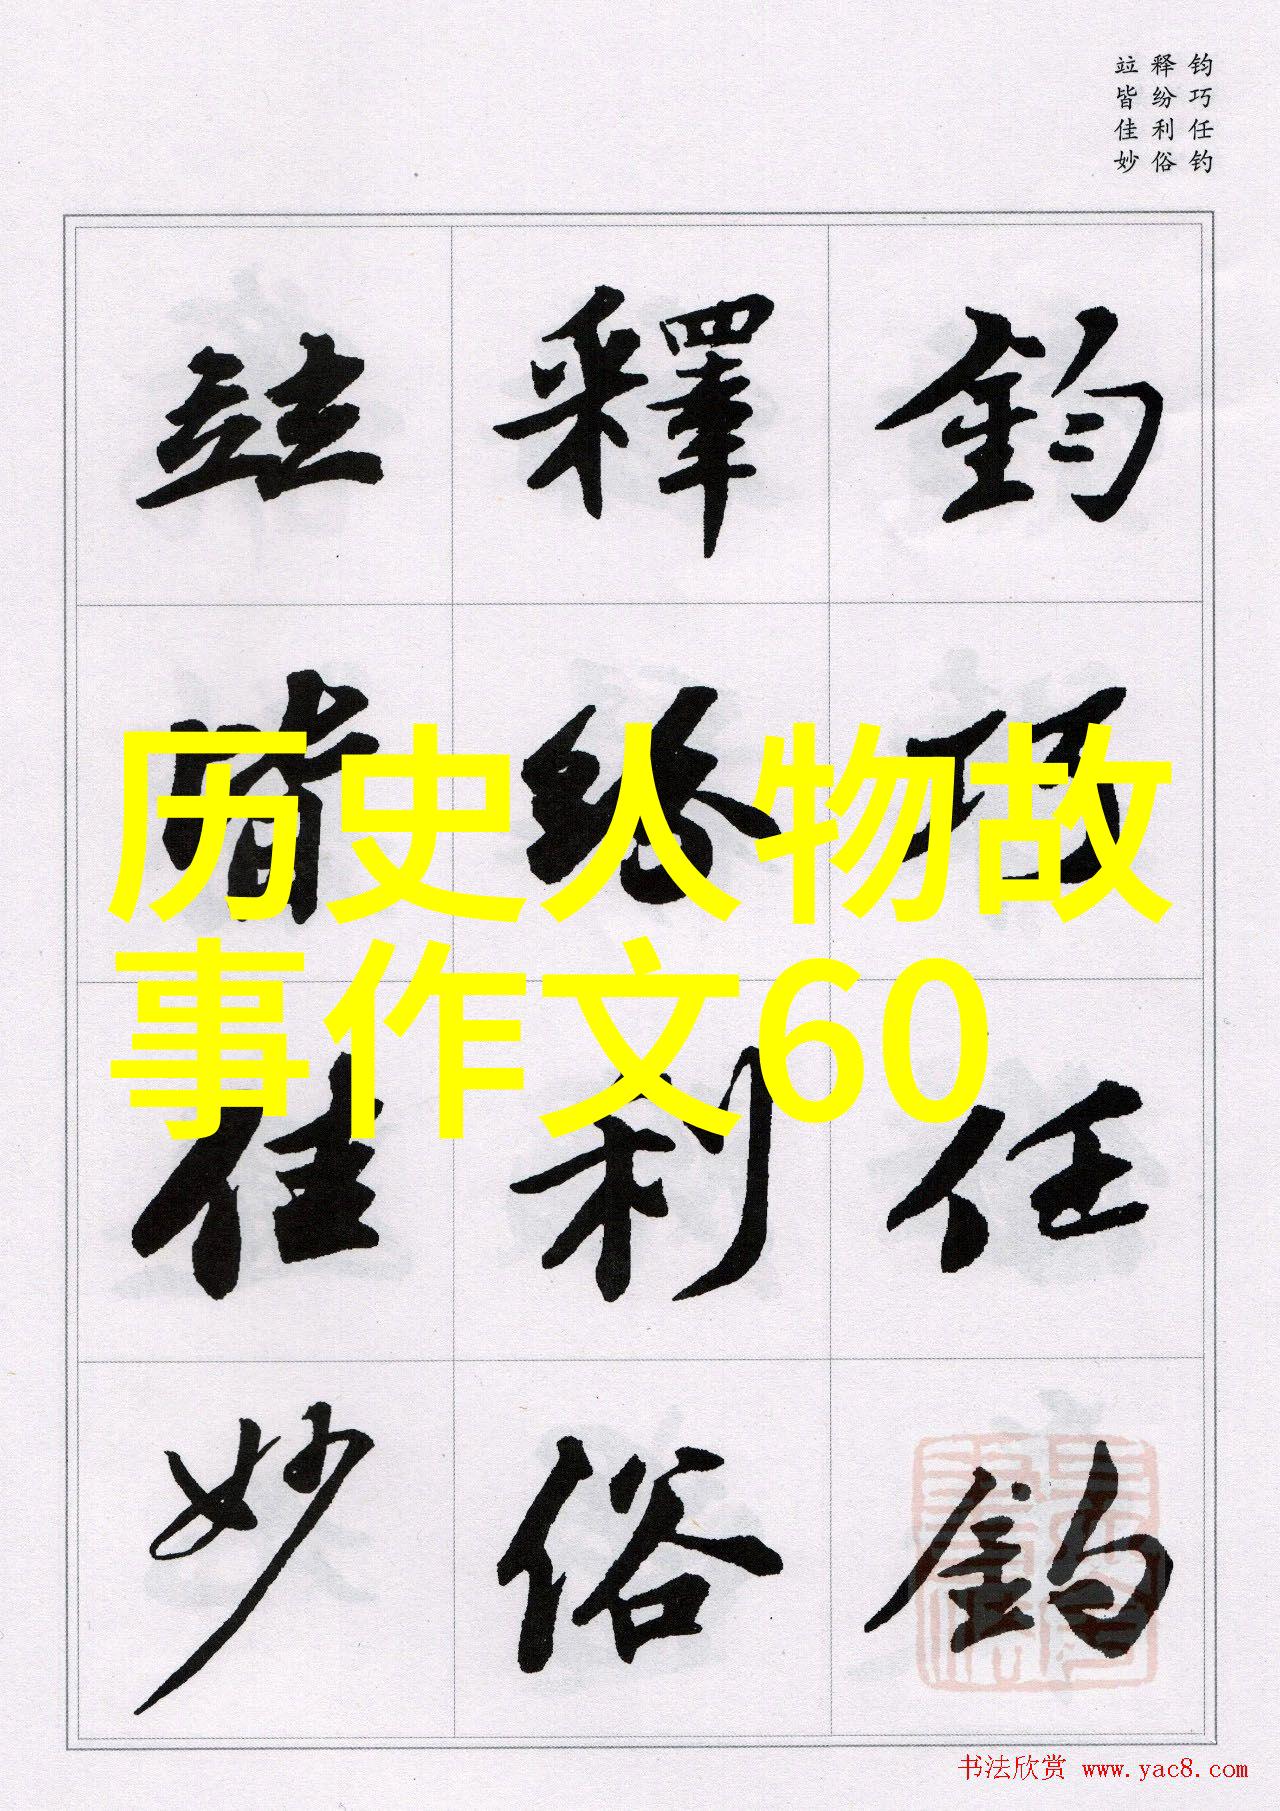 钧巧任钓
释纷利俗
竝皆佳妙
历史人物故
事作文60
鈞巧任釣
釋紛利俗
竝皆佳妙
书法欣赏 www.yac8.com